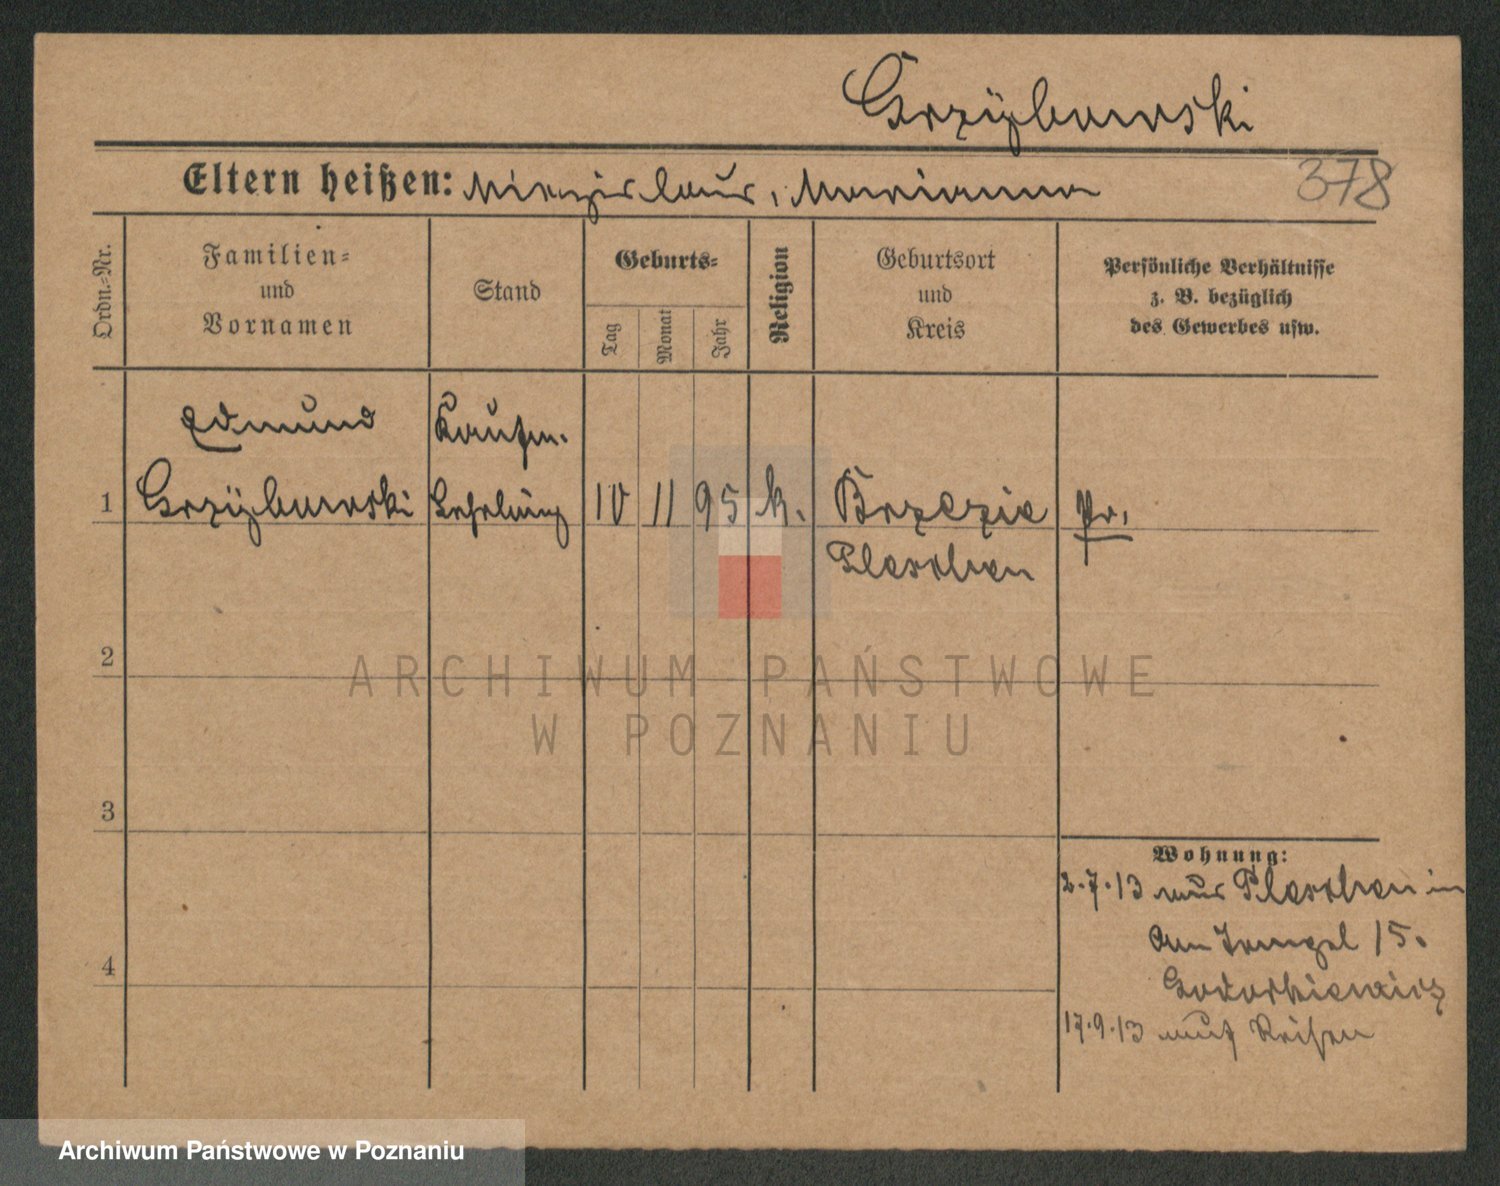 Grzybowski
Eltern heißen: Miezislaus, Marianna
378
Ordn.-Nr.
Familien-
und
Vornamen
Stand
Geburts-
Tag
Monat
Jahr
Religion
Geburtsort
und
Kreis
Persönliche Verhältnisse
z. B. bezüglich
des Gewerbes usw.
Edmund
Kaufm.
1 Grzybowski Lehrling 10 11 95 k. Brzezie Pr.
Pleschen
2
ARCHIWUM PAŃSTWOWE
W POZNANIU
3
Wohnung:
2.7.13 aus Pleschen in
Am 15.
4
17.9.13 auf Reisen
Archiwum Państwowe w Poznaniu